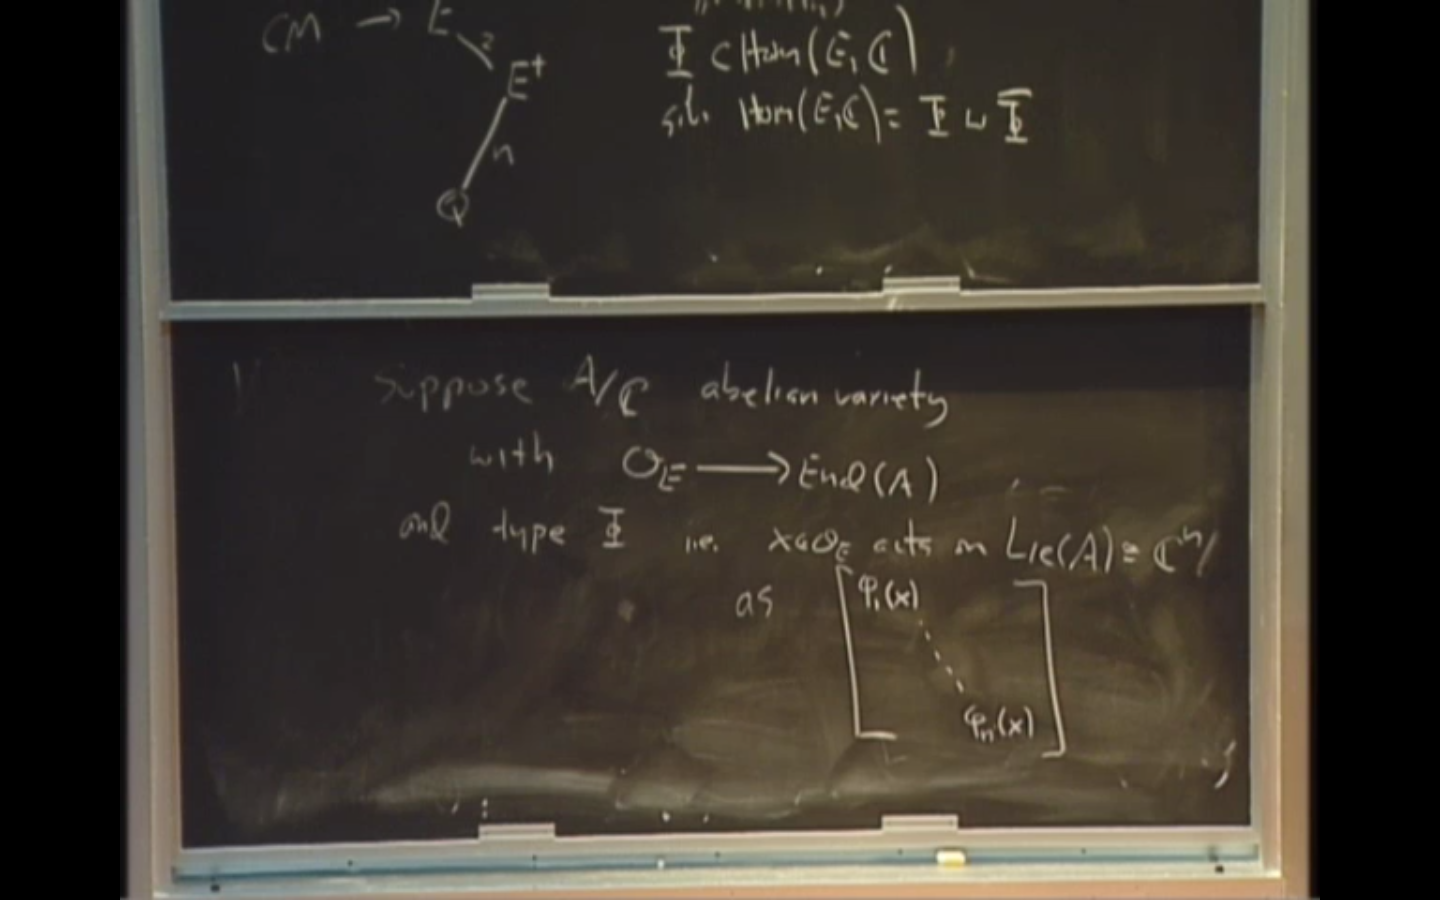 CM → E
2
E⁺
n
Q
Φ ⊂ Hom(E, ℂ)
s.t. Hom(E, ℂ) = Φ ⊔ Φ̅
Suppose A/ℂ abelian variety
with O_E ⟶ End(A)
and type Φ i.e. x∈O_E acts on Lie(A) ≅ ℂⁿ
as [φ₁(x)
⋱
φₙ(x)]